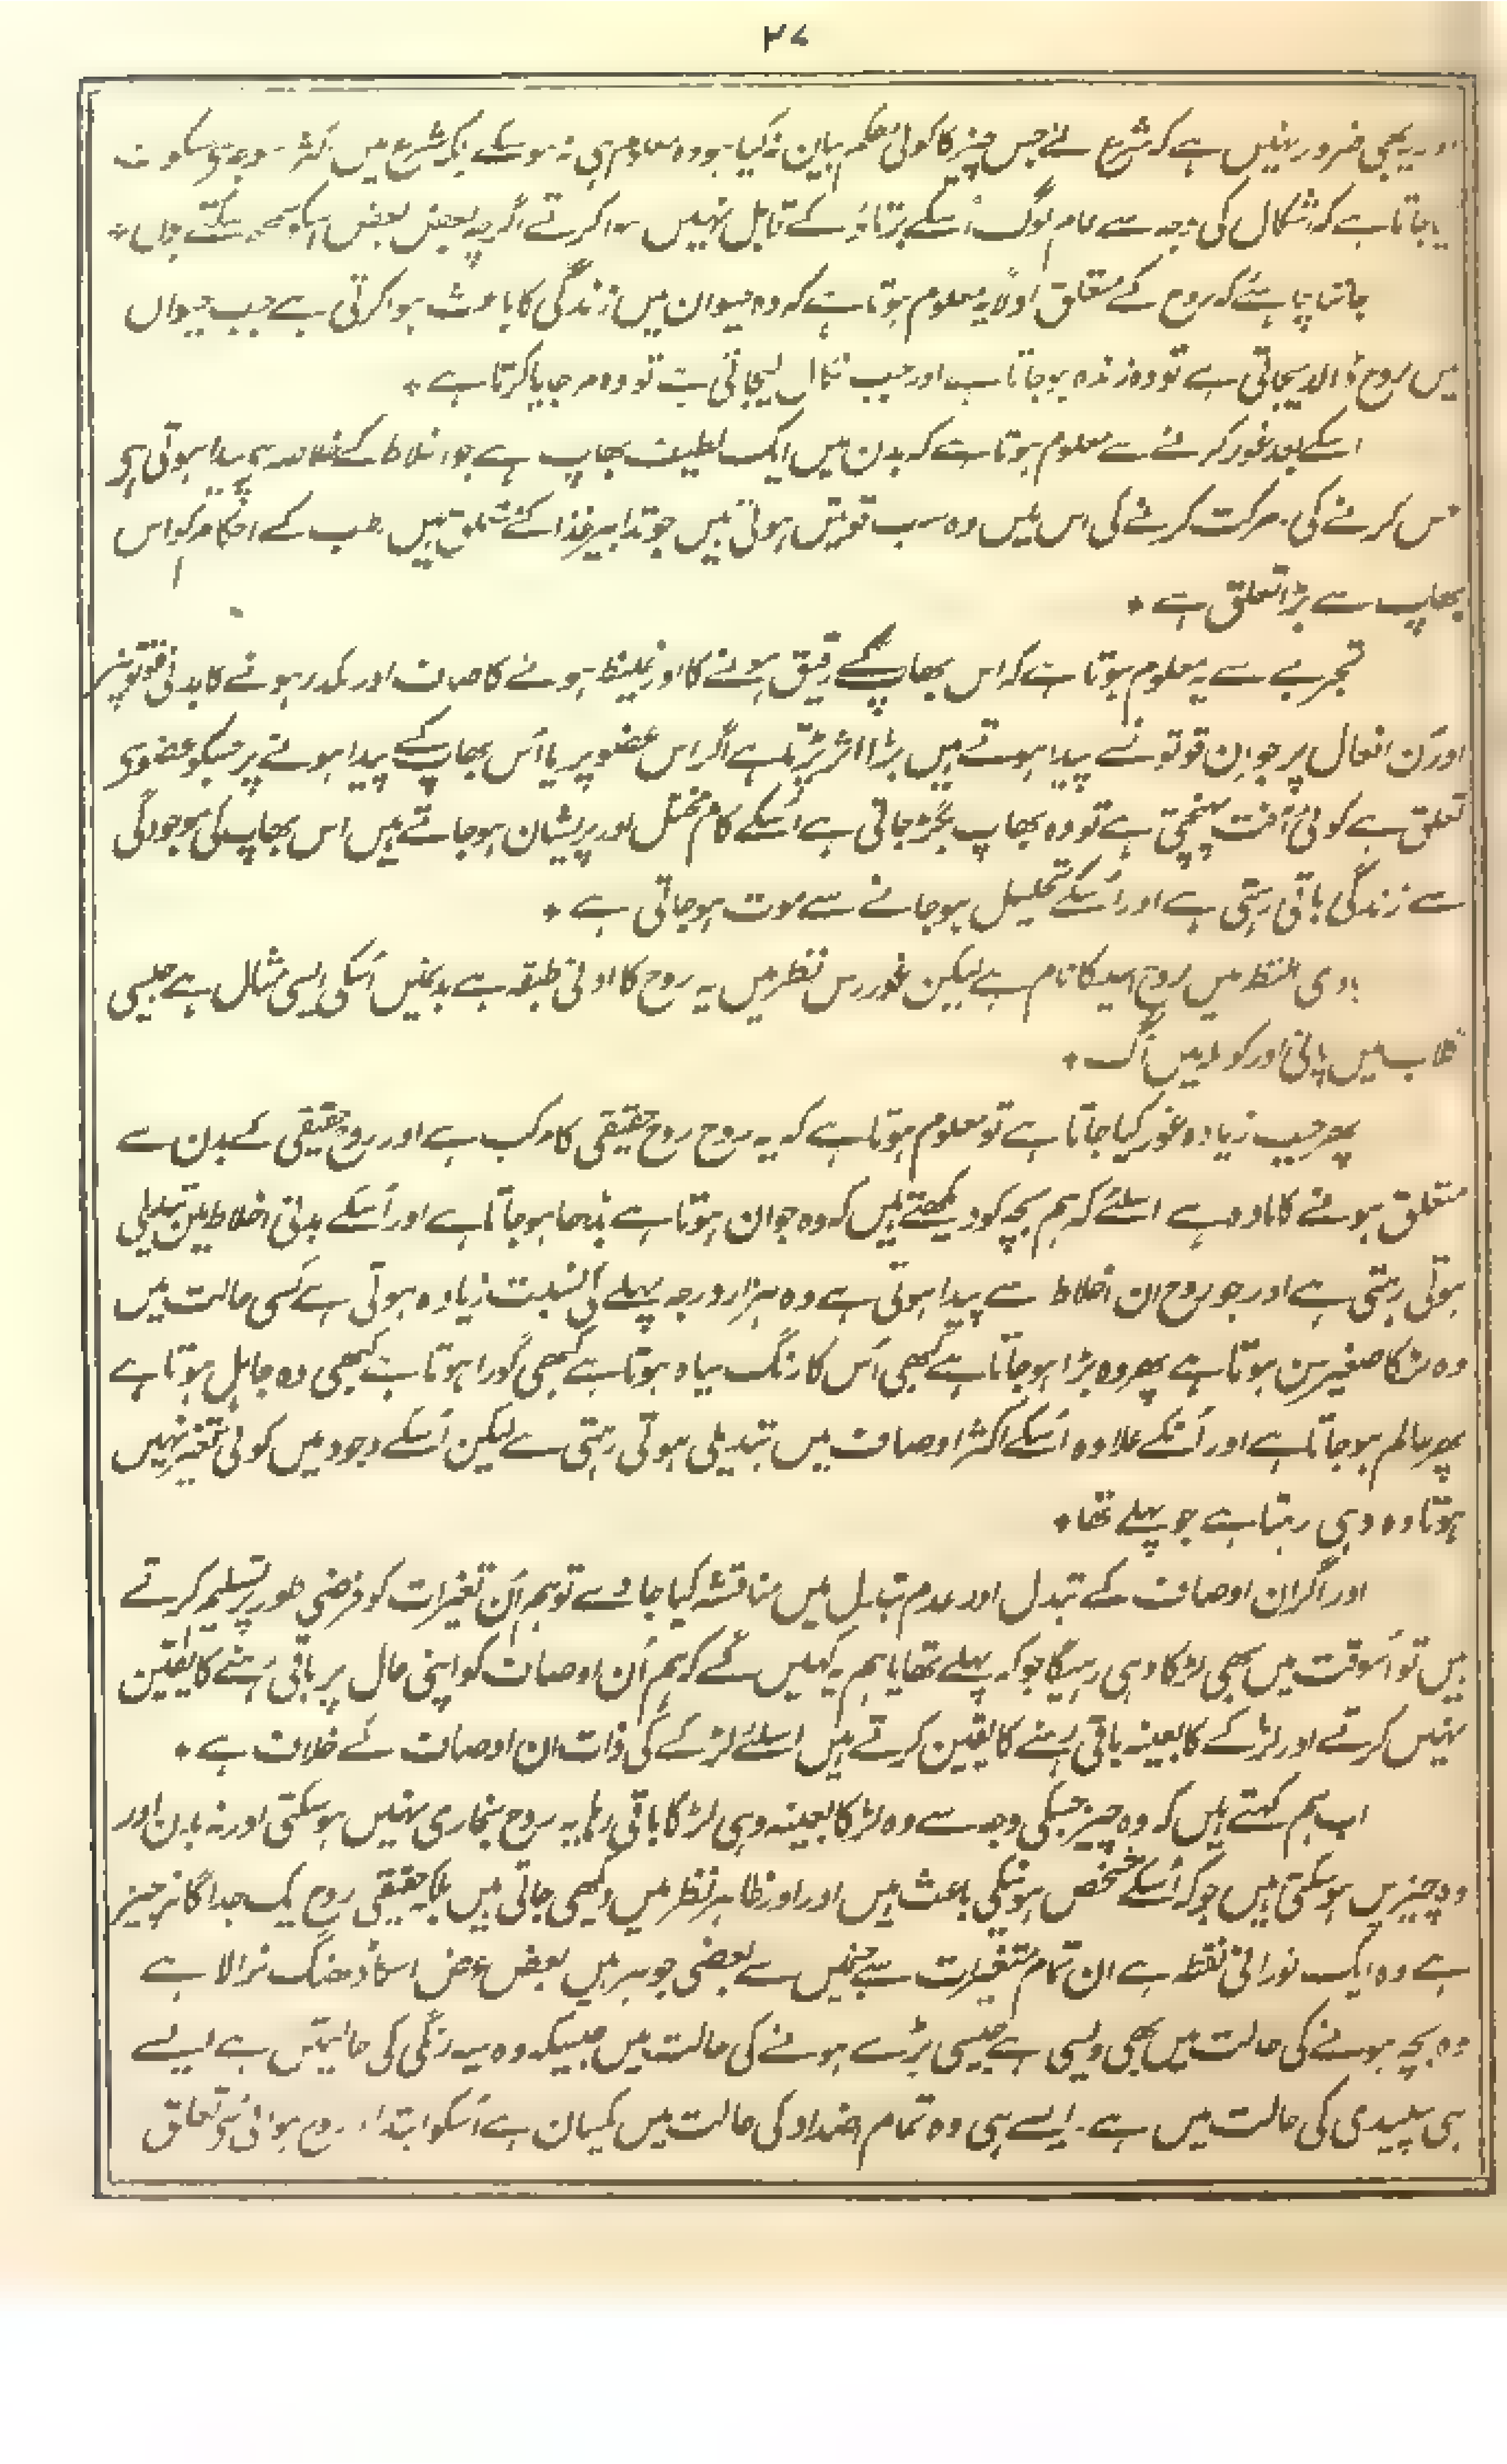 ۲۷
اور یہ بھی ضرور نہیں ہے کہ شرع نے جس چیز کا کوئی حکم بیان نہ کیا ہو وہ معلوم ہی نہ ہو سکے بلکہ شرع میں اکثر سکوت
جاتا ہے کہ اشکال کی وجہ سے عام لوگ اُسکے برتاؤ کے قابل نہیں ہوا کرتے اگرچہ بعض بعض اسکو سمجھ سکتے ہوں *
جاننا چاہئے کہ روح کے متعلق اولاً یہ معلوم ہوتا ہے کہ وہ حیوان میں زندگی کا باعث ہوا کرتی ہے جب حیوان
میں روح ڈالدیجاتی ہے تو وہ زندہ ہو جاتا ہے اور جب نکال لیجاتی ہے تو وہ مر جایا کرتا ہے *
اسکے بعد غور کرنے سے معلوم ہوتا ہے کہ بدن میں ایک لطیف بھاپ ہے جو اخلاط کے خلاصہ سے پیدا ہوتی ہے
حس کرنے کی حرکت کرنے کی اس میں وہ سب قوتیں ہوتی ہیں جو تدابیر غذا کے متعلق ہیں طب کے احکام کو اس
بھاپ سے بڑا تعلق ہے *
تجربے سے یہ معلوم ہوتا ہے کہ اس بھاپ کے رقیق ہونے کا اور غلیظ ہونے کا صاف اور مکدر ہونے کا بدنی قوتوں پر
اور اُن افعال پر جو ان قوتوں سے پیدا ہوتے ہیں بڑا اثر پڑتا ہے اگر اس عضو پر یا اُس بھاپ کے پیدا ہونے پر جسکو عضو سے
تعلق ہے کوئی آفت پہنچتی ہے تو وہ بھاپ بگڑ جاتی ہے اُسکے کام مختل اور پریشان ہو جاتے ہیں اس بھاپ کی موجودگی
سے زندگی باقی رہتی ہے اور اُسکے تحلیل ہو جانے سے موت ہو جاتی ہے *
بادی النظر میں روح اسیکا نام ہے لیکن غور رس نظر میں یہ روح کا ادنی طبقہ ہے بدنمیں اُسکی ایسی مثال ہے جیسی
گلاب میں پانی اور کوئلہ میں آگ *
پھر جب زیادہ غور کیا جاتا ہے تو معلوم ہوتا ہے کہ یہ روح روح حقیقی کا مرکب ہے اور روح حقیقی کے بدن سے
متعلق ہونے کا مادہ ہے اسلئے کہ ہم بچہ کو دیکھتے ہیں کہ وہ جوان ہوتا ہے بڈھا ہو جاتا ہے اور اُسکے بدنی اخلاط میں تبدیلی
ہوتی رہتی ہے اور جو روح ان اخلاط سے پیدا ہوتی ہے وہ ہزار درجہ پہلے کی نسبت زیادہ ہوتی ہے کسی حالت میں
وہ لڑکا صغیر سن ہوتا ہے پھر وہ بڑا ہو جاتا ہے کبھی اُس کا رنگ سیاہ ہوتا ہے کبھی گورا ہوتا ہے کبھی وہ جاہل ہوتا ہے
پھر عالم ہو جاتا ہے اور اُنکے علاوہ اُسکے اکثر اوصاف میں تبدیلی ہوتی رہتی ہے لیکن اُسکے وجود میں کوئی تغیر نہیں
ہوتا وہ وہی رہتا ہے جو پہلے تھا *
اور اگر ان اوصاف کے تبدل اور عدم تبدل میں مناقشہ کیا جاوے تو ہم اُن تغیرات کو فرضی طور پر تسلیم کرتے
ہیں تو اُسوقت میں بھی لڑکا وہی رہیگا جو کہ پہلے تھا یا ہم یہ کہیں گے کہ ہم اُن اوصاف کو اپنی حال پر باقی رہنے کا یقین
نہیں کرتے اور لڑکے کا بعینہ باقی رہنے کا یقین کرتے ہیں اسلئے لڑکے کی ذات ان اوصاف کے خلاف ہے *
اب ہم کہتے ہیں کہ وہ چیز جسکی وجہ سے وہ لڑکا بعینہ وہی لڑکا باقی رہا یہ روح بخاری نہیں ہو سکتی اور نہ بدن اور
وہ چیزیں ہو سکتی ہیں جو کہ اُسکے تشخص ہونیکی باعث ہیں اور اور ظاہر نظر میں دیکھی جاتی ہیں بلکہ حقیقی روح یک جداگانہ چیز
ہے وہ ایک نورانی نقطہ ہے ان تمام تغیرات سے جنمیں سے بعضی جوہر ہیں بعض عرض اسکا ڈھنگ نرالا ہے
وہ بچہ ہونے کی حالت میں بھی ویسی ہے جیسی بڑے ہونے کی حالت میں جیسیکہ وہ سیہ رنگی کی حالتمیں ہے ایسے
ہی سپیدی کی حالت میں ہے۔ ایسے ہی وہ تمام اضداد کی حالت میں یکسان ہے اُسکو ابتداءً روح ہوائی سے تعلق